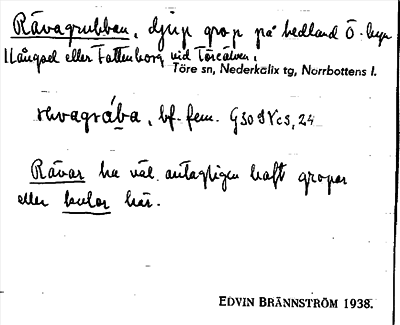 Rävagrubban, djup grop på hedland Ö. byn
Långsel eller Fattenborg vid Töreälven.
Töre sn, Nederkalix tg, Norrbottens l.
bf. fem. G30
Rävar ha väl antagligen haft gropar
eller kulor här.
EDVIN BRÄNNSTRÖM 1938.